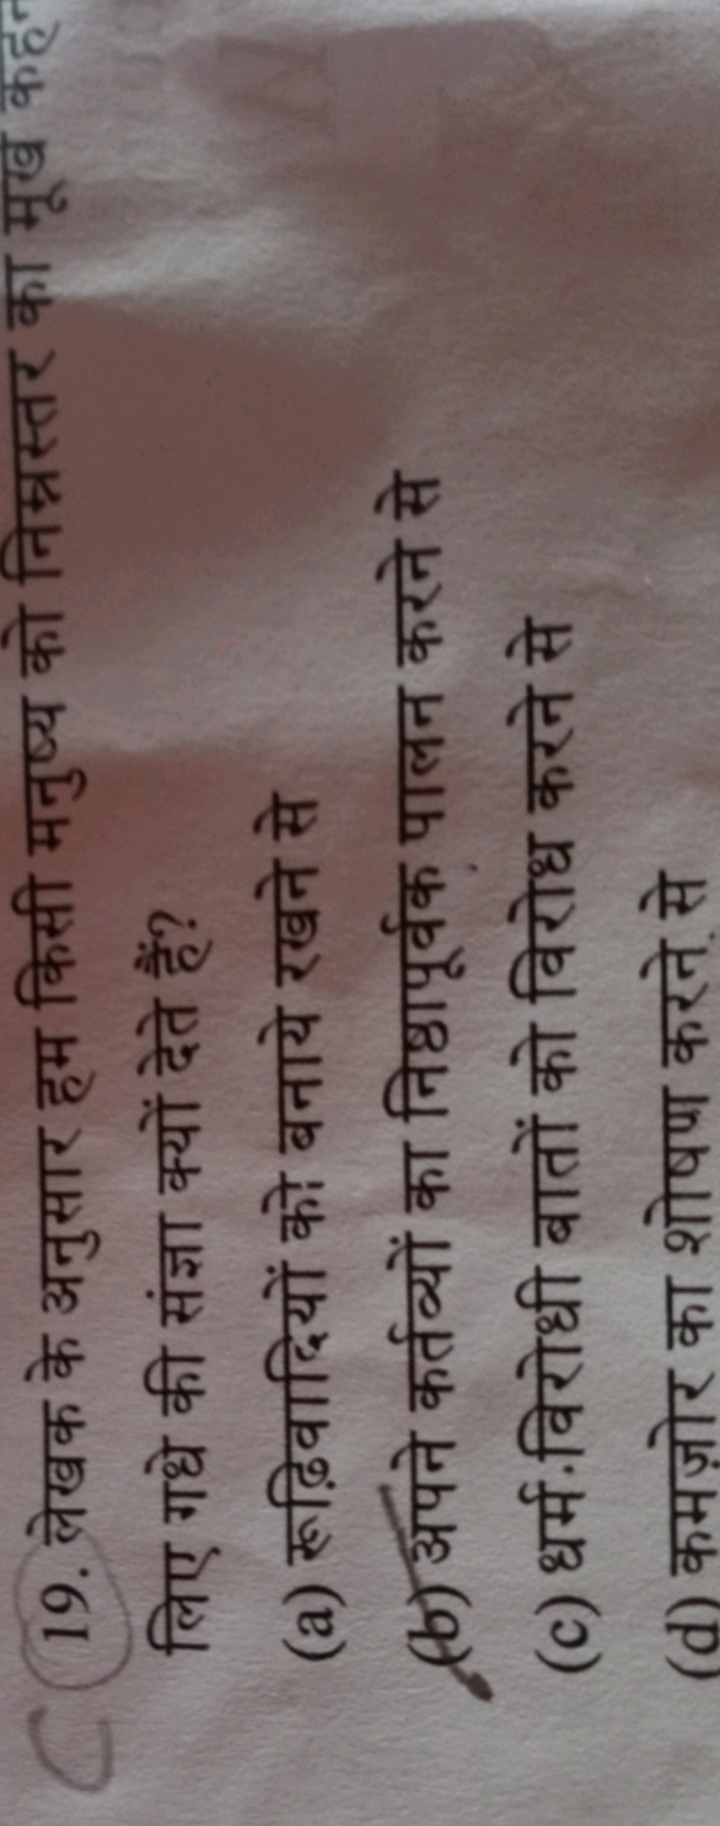 C 19. लेखक के अनुसार हम किसी मनुष्य को निम्नस्तर का मूर्ख कहने
लिए गधे की संज्ञा क्यों देते हैं?
(a) रूढ़िवादियों को बनाये रखने से
(b) अपने कर्तव्यों का निष्ठापूर्वक पालन करने से
(c) धर्म विरोधी बातों को विरोध करने से
(d) कमज़ोर का शोषण करने से